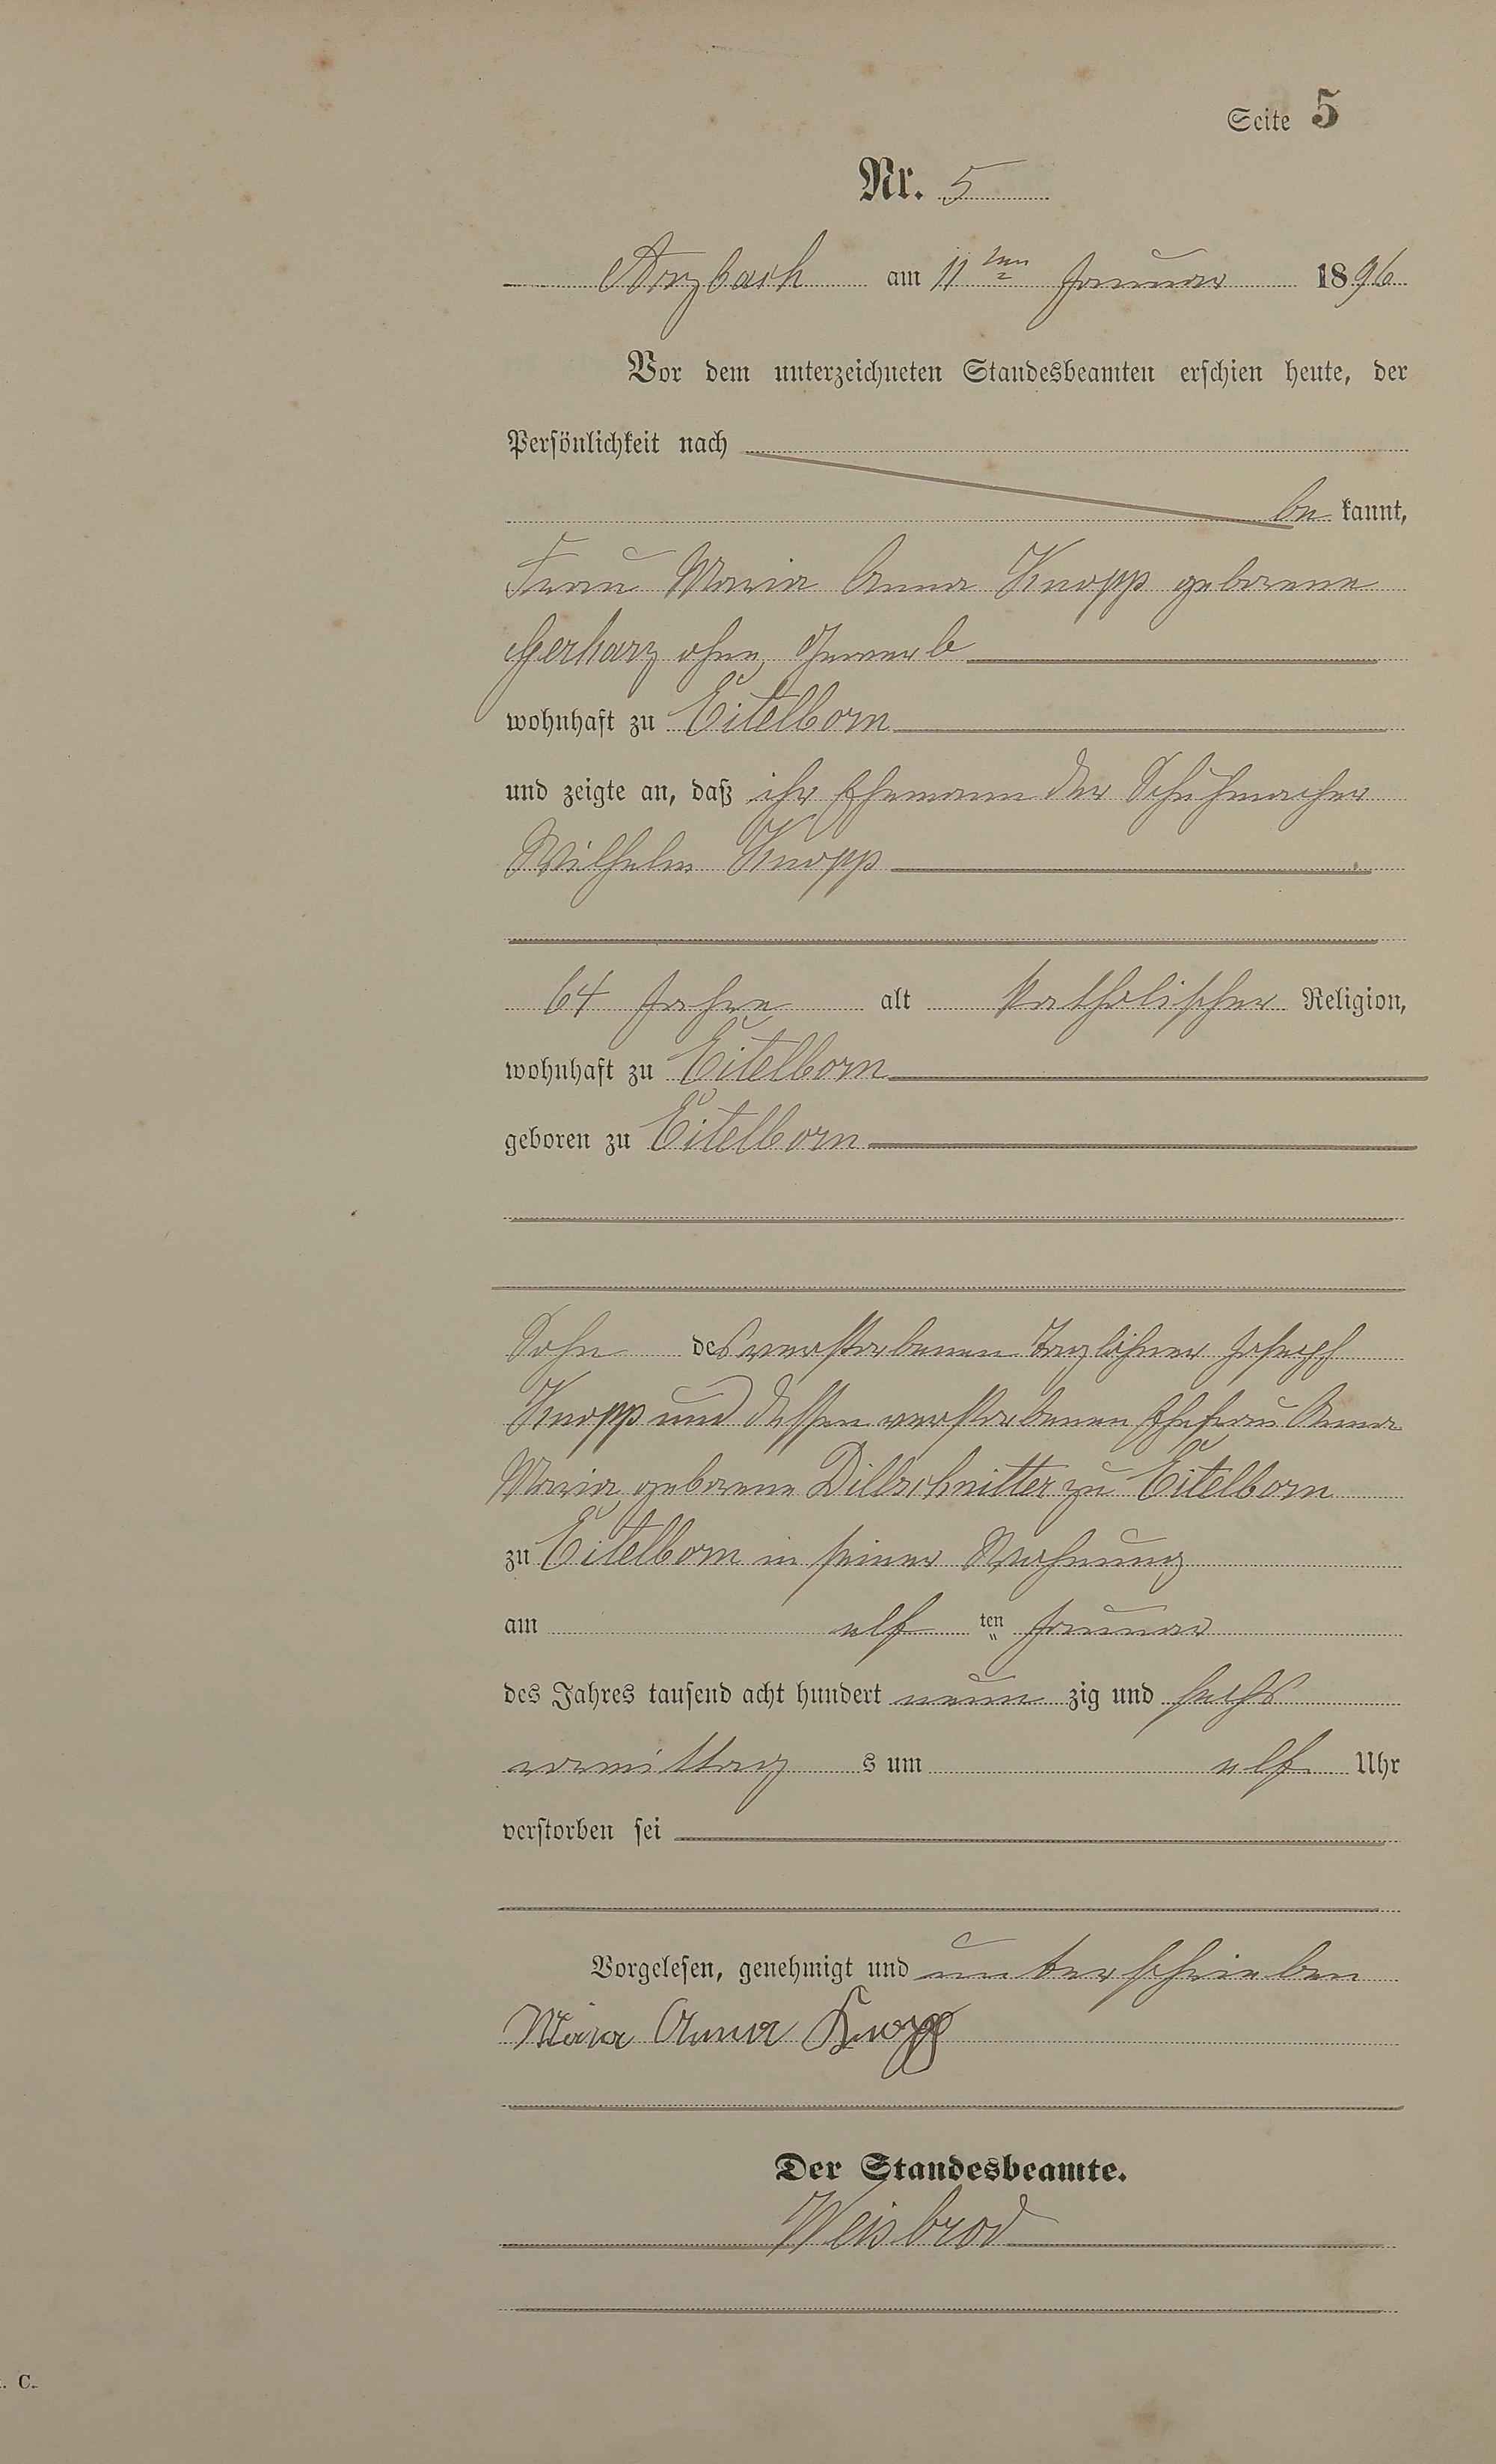 Seite 5
Nr. 5
Arzbach am 11ten Januar 1896
Vor dem unterzeichneten Standesbeamten erschien heute, der
Persönlichkeit nach
be kannt,
Frau Maria Anna Knopp geborene
Gerharz ohne Gewerb
wohnhaft zu Eitelborn
und zeigte an, daß ihr Ehemann der Schuhmacher
Wilhelm Knopp
64 Jahre alt katholischer Religion,
wohnhaft zu Eitelborn
geboren zu Eitelborn
Sohn des verstorbenen Taglöhner Joseph
Knopp und dessen verstorbenen Ehefrau Anna
Maria geborene Dillschnitter zu Eitelborn
zu Eitelborn in seiner Wohnung
am elf ten Januar
des Jahres tausend acht hundert neun zig und sechs
vormittag s um elf Uhr
verstorben sei
Vorgelesen, genehmigt und unterschrieben
Maria Anna Knopp
Der Standesbeamte.
Weisbrod
. C.